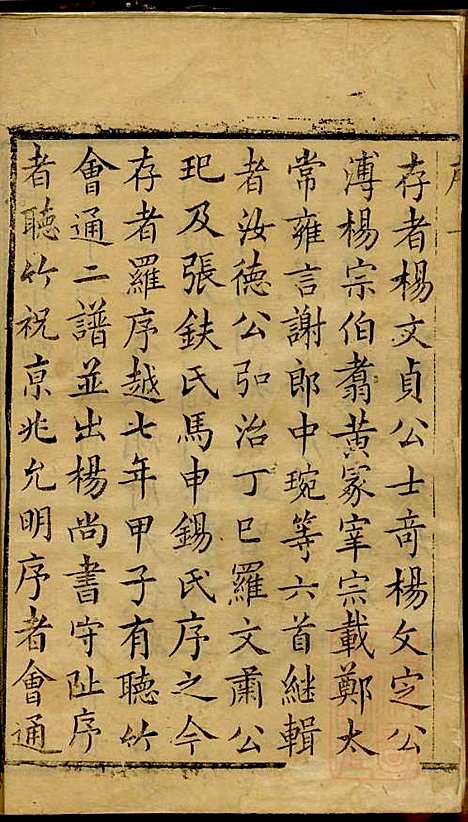 存者楊文貞公士奇楊文定公
溥楊宗伯翥黃冢宰宗載鄭太
常雍言謝郎中琬等六首継輯
者汝德公弘治丁巳羅文肅公
玘及張鈇氏馬申錫氏序之今
存者羅序越七年甲子有聽竹
會通二譜並出楊尚書守阯序
者聽竹祝京兆允明序者會通